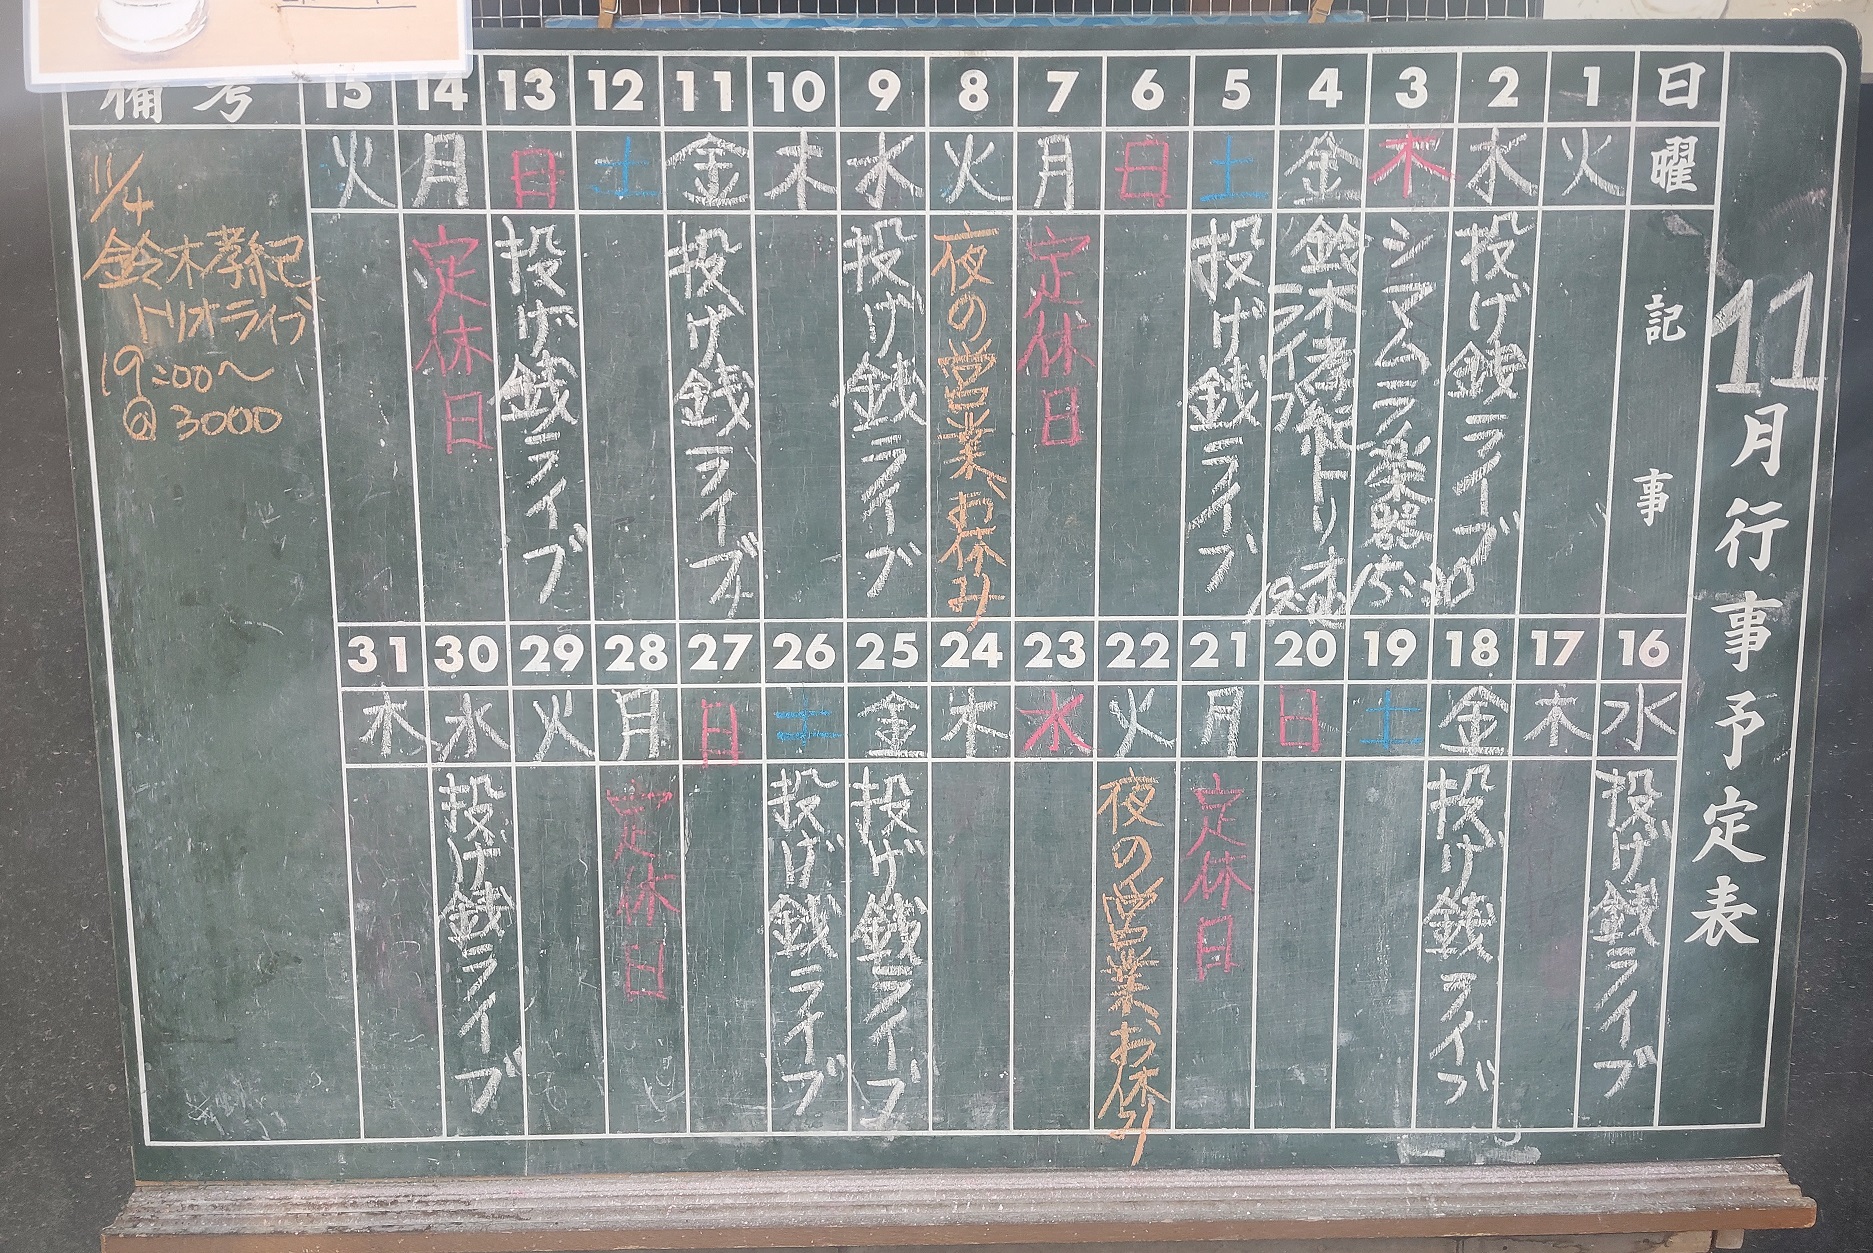 11月行事予定表
日 1 2 3 4 5 6 7 8 9 10 11 12 13 14 15 備考
曜 火 水 木 金 土 日 月 火 水 木 金 土 日 月 火
記事
投げ銭ライブ
シマムラ楽器 15:30
鈴木孝紀トリオ
ライブ
投げ銭ライブ
定休日
夜の営業お休み
投げ銭ライブ
投げ銭ライブ
投げ銭ライブ
定休日
16 17 18 19 20 21 22 23 24 25 26 27 28 29 30 31
水 木 金 土 日 月 火 水 木 金 土 日 月 火 水 木
投げ銭ライブ
投げ銭ライブ
定休日
夜の営業お休み
投げ銭ライブ
投げ銭ライブ
定休日
投げ銭ライブ
11/4
鈴木孝紀
トリオライブ
19:00〜
@3000